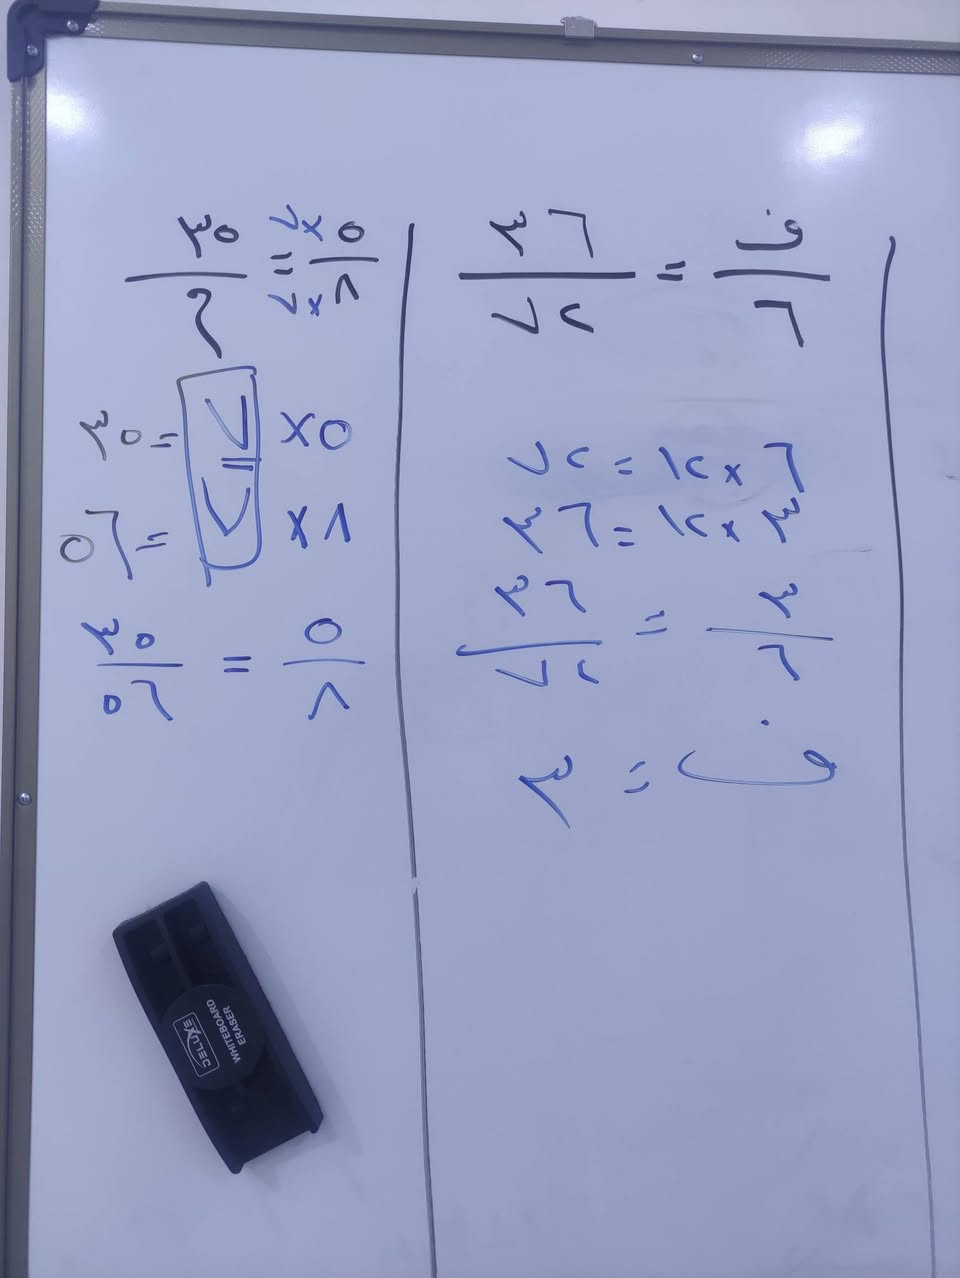 ف/٦ = ٣٦/٧٢
٦ × ١٢ = ٧٢
٣ × ١٢ = ٣٦
٣/٦ = ٣٦/٧٢
ف = ٣
٥×٧/٨×٧ = ٣٥/م
٥ × ٧ = ٣٥
=
٨ × ٧ = ٥٦
٥/٨ = ٣٥/٥٦
DELUXE
WHITEBOARD
ERASER